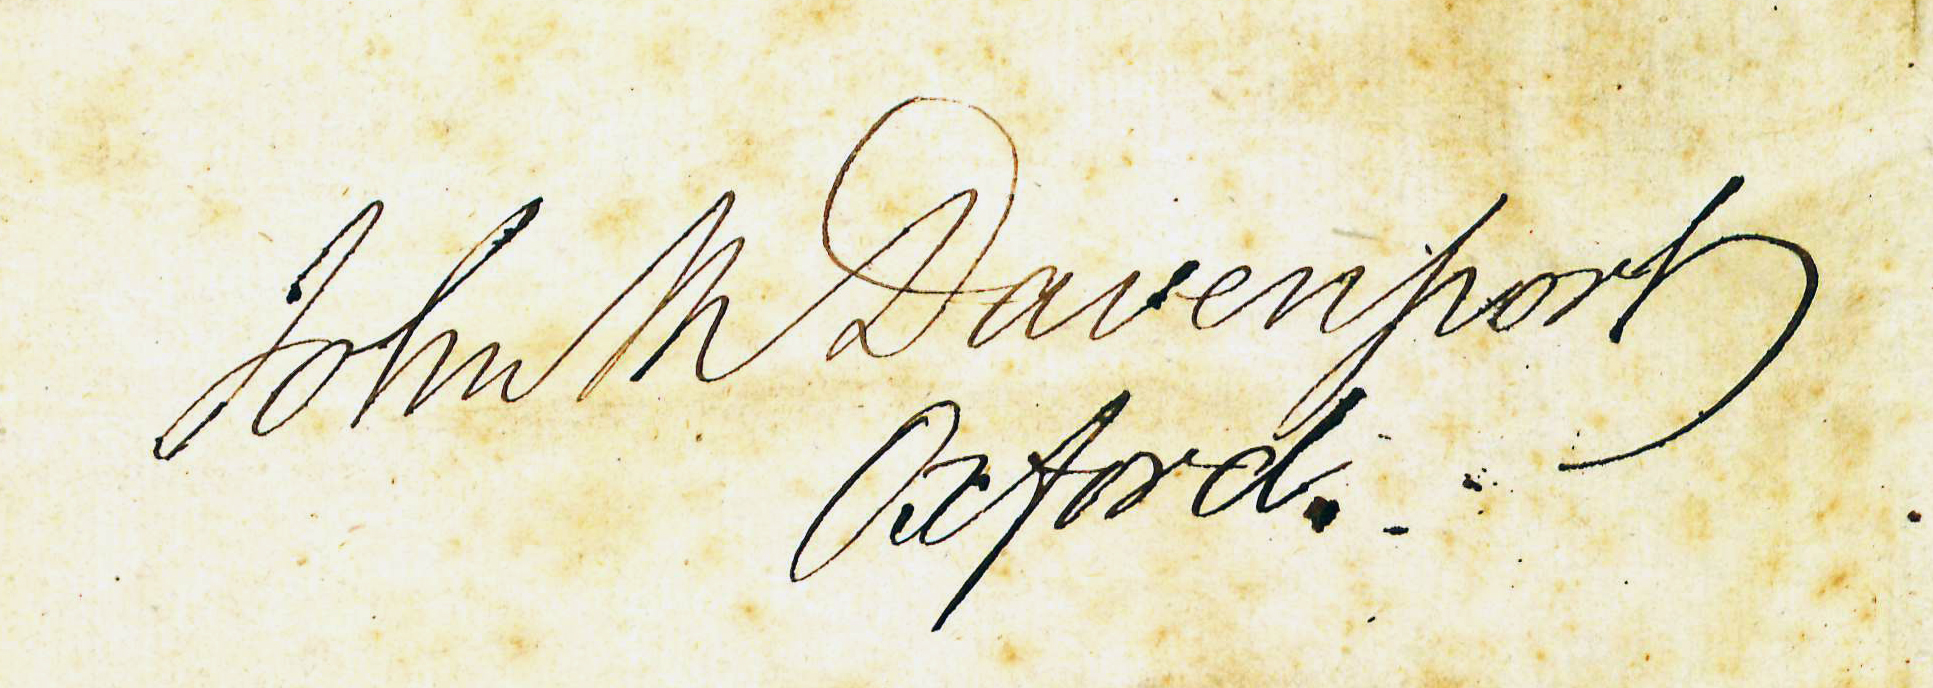 John M Davenport
Oxford.